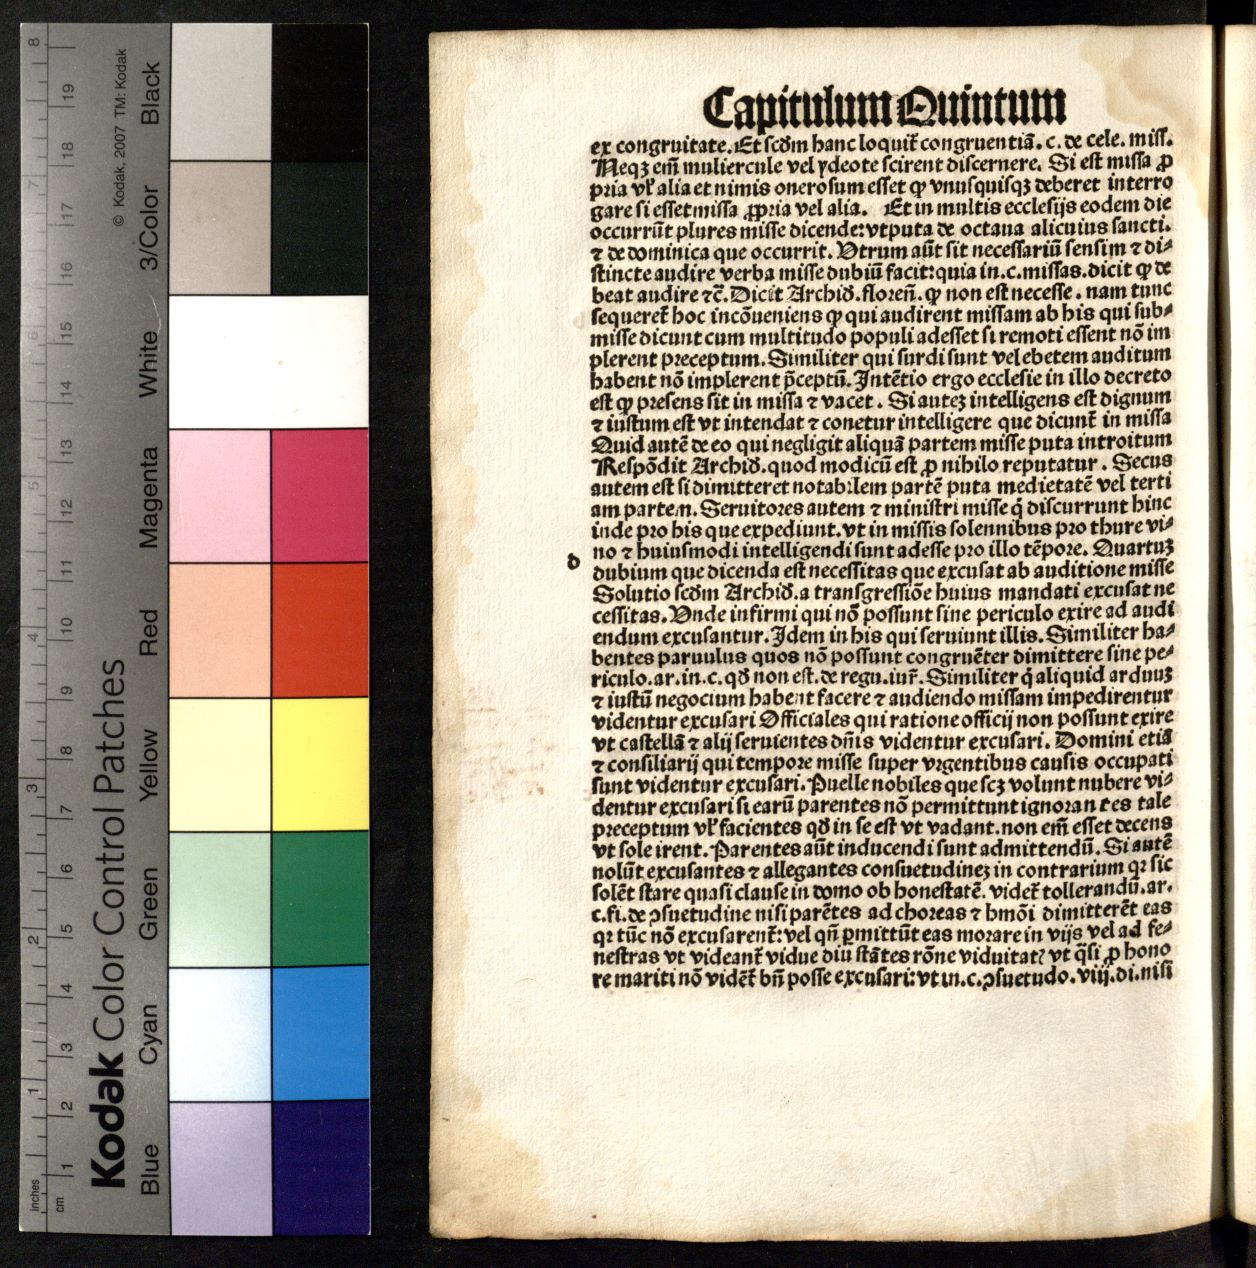 Capitulum Quintum
ex congruitate. Et scḋm hanc loquit̃ congruentiã. c. de cele. miss.
Neqꝫ em̃ muliercule vel ydeote scirent discernere. Si est missa ꝓ
pria vl̕ alia et nimis onerosum esset ꝙ vnusquisqꝫ deberet interro
gare si esset missa ꝓpria vel alia. Et in multis ecclesijs eodem die
occurrũt plures misse dicende: vtputa de octaua alicuius sancti.
⁊ de dominica que occurrit. Vtrum aũt sit necessariũ sensim ⁊ di⸗
stincte audire verba misse dubiũ facit: quia in. c. missas. dicit ꝙ de
beat audire ⁊c̃. Dicit Archiḋ. floreñ. ꝙ non est necesse. nam tunc
sequeret̃ hoc incõueniens ꝙ qui audirent missam ab his qui sub⸗
misse dicunt cum multitudo populi adesset si remoti essent nõ im
plerent preceptum. Similiter qui surdi sunt vel ebetem auditum
habent nõ implerent p̃ceptũ. Intẽtio ergo ecclesie in illo decreto
est ꝙ presens sit in missa ⁊ vacet. Si auteꝫ intelligens est dignum
⁊ iustum est vt intendat ⁊ conetur intelligere que dicunt̃ in missa
Quid autẽ de eo qui negligit aliquã partem misse puta introitum
Respõdit Archiḋ. quod modicũ est ꝓ nihilo reputatur. Secus
autem est si dimitteret notabilem partẽ puta medietatẽ vel terti
am partem. Seruitores autem ⁊ ministri misse q̇ discurrunt hinc
inde pro his que expediunt. vt in missis solennibus pro thure vi⸗
no ⁊ huiusmodi intelligendi sunt adesse pro illo tẽpore. Quartuꝫ
d
dubium que dicenda est necessitas que excusat ab auditione misse
Solutio scḋm Archiḋ. a transgressiõe huius mandati excusat ne
cessitas. Vnde infirmi qui nõ possunt sine periculo exire ad audi
endum excusantur. Idem in his qui seruiunt illis. Similiter ha⸗
bentes paruulus quos nõ possunt congruẽter dimittere sine pe⸗
riculo. ar. in. c. qḋ non est. de regu. iur̃. Similiter q̇ aliquid arduuꝫ
⁊ iustũ negocium habent facere ⁊ audiendo missam impedirentur
videntur excusari Officiales qui ratione officij non possunt exire
vt castellã ⁊ alij seruientes dñis videntur excusari. Domini etiã
⁊ consiliarij qui tempore misse super vrgentibus causis occupati
sunt videntur excusari. Puelle nobiles que scꝫ volunt nubere vi⸗
dentur excusari si earũ parentes nõ permittunt ignorantes tale
preceptum vl̕ facientes qḋ in se est vt vadant. non em̃ esset decens
vt sole irent. Parentes aũt inducendi sunt admittendũ. Si autẽ
nolũt excusantes ⁊ allegantes consuetudineꝫ in contrarium qꝛ sic
solẽt stare quasi clause in domo ob honestatẽ. videt̃ tollerandũ. ar.
c. fi. de ꝯsuetudine nisi parẽtes ad choreas ⁊ hmõi dimitterẽt eas
qꝛ tũc nõ excusarent̃: vel qñ ꝑmittũt eas morare in vijs vel ad fe⸗
nestras vt videant̃ vidue diu stãtes rõne viduitatꝭ vt q̃si ꝓ hono
re mariti nõ vidẽt̃ bñ posse excusari: vt in. c. ꝯsuetudo. viij. di. nisi
Kodak Color Control Patches
© Kodak, 2007 TM: Kodak
Blue Cyan Green Yellow Red Magenta White 3/Color Black
inches 1 2 3 4 5 6 7 8
cm 1 2 3 4 5 6 7 8 9 10 11 12 13 14 15 16 17 18 19